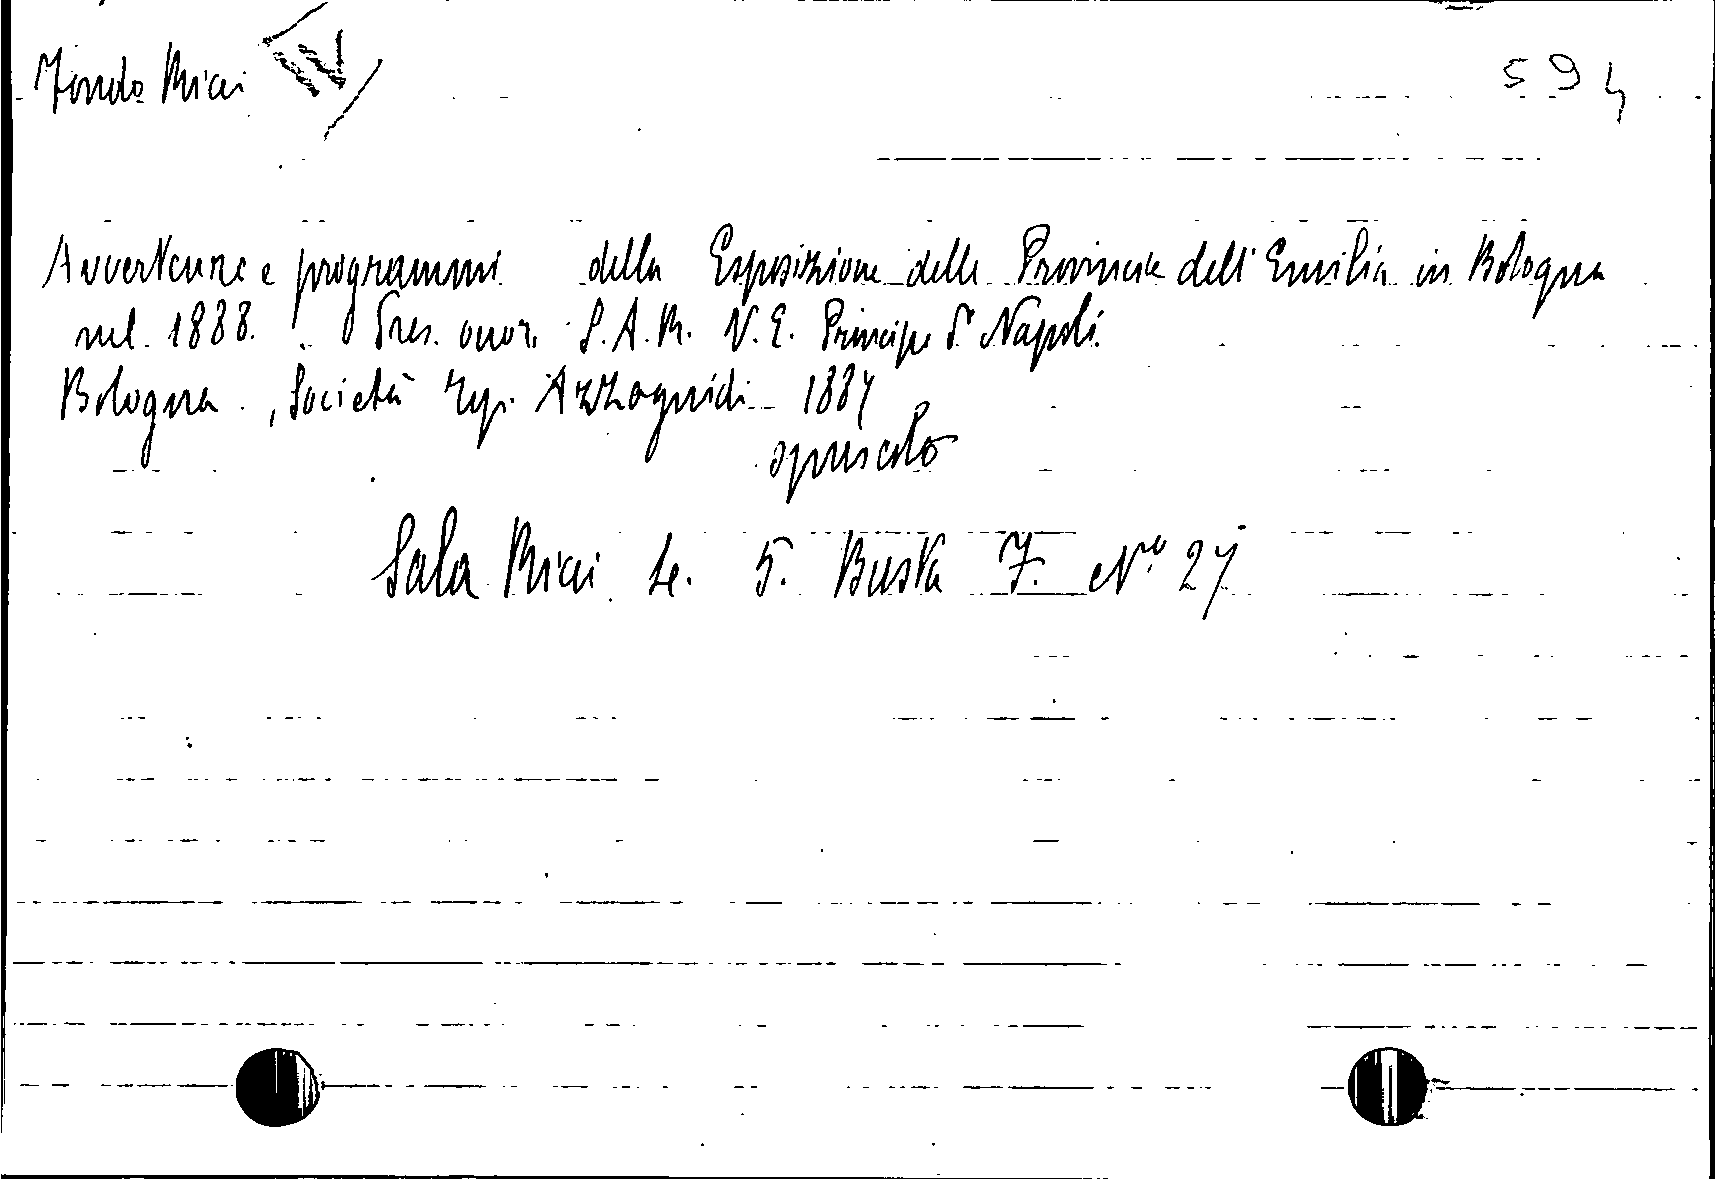 Fondo Ricci
594
Avvertenze e programmi della Esposizione delle Provincie dell'Emilia in Bologna
nel 1888. Pres. onor. S.A.R. V.E. Principe di Napoli.
Bologna, Società Tip. Azzoguidi 1887
opuscolo
Sala Ricci Le. 5. Busta 7. No 27